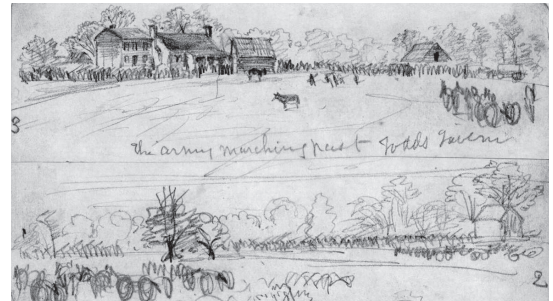 3
the army marching past Todds Tavern
2